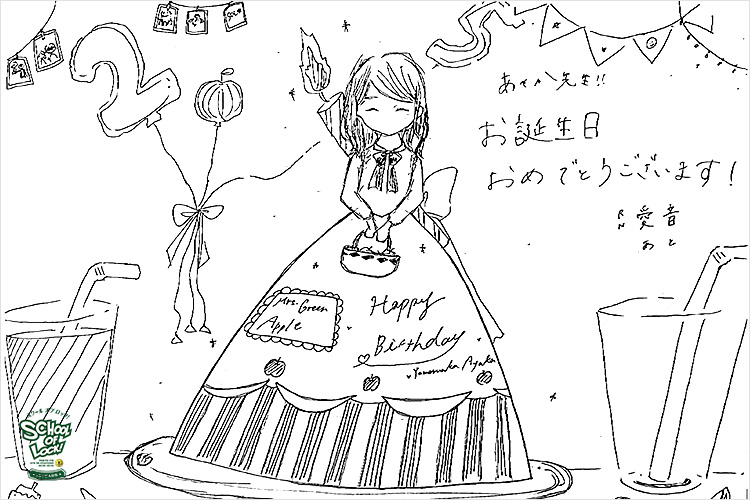 2
5
あやか先生!!
お誕生日
おめでとうございます!
RN 愛音
あと
Mrs. Green
Apple
Happy
Birthday
Yamanaka Ayaka
SCHOOL
OF
LOCK!